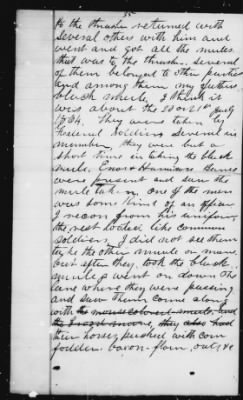 to the thrasher returned with
several others with him and
went and got all the mules
that was to the thrasher. Several
of them belonged to other parties
and among them my fathers
black mule, I think it
was about the 20 or 21st July
1864. They were taken by
Federal Soldiers several in
number, they were but a
short time in taking the black
mule, Enos & Harrison James
were present and saw the
mule taken, one of the men
was some kind of an officer
I recon from his uniform,
the rest looked like common
soldiers, I did not see them
take the other mule or mare,
but after they took the black
mule I went on down the
lane where they were passing
and saw them come along
with the mouse colored mule and
the mare, they also had
their horses packed with corn
fodder, bacon, flour, oats &c